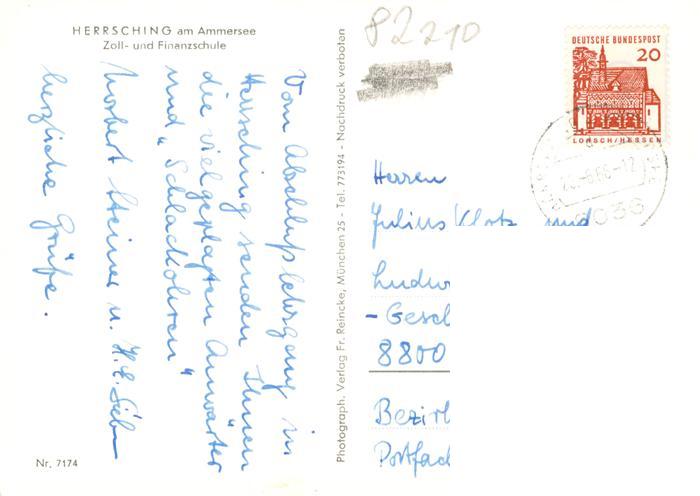 HERRSCHING am Ammersee
Zoll- und Finanzschule
Vom Abschlußlehrgang in
Herrsching senden Ihnen
die vielgeplagten Anwärter
und "Schlachtohren"
Norbert Steiner u. H. E. Sieb
herzliche Grüße.
Nr. 7174
Photograph. Verlag Fr. Reincke, München 25 - Tel. 773194 - Nachdruck verboten
82210
DEUTSCHE BUNDESPOST
20
LORSCH/HESSEN
8036
Herren
Julius Klotz und
Ludw
- Gesch
8800
Bezirk
Postfach